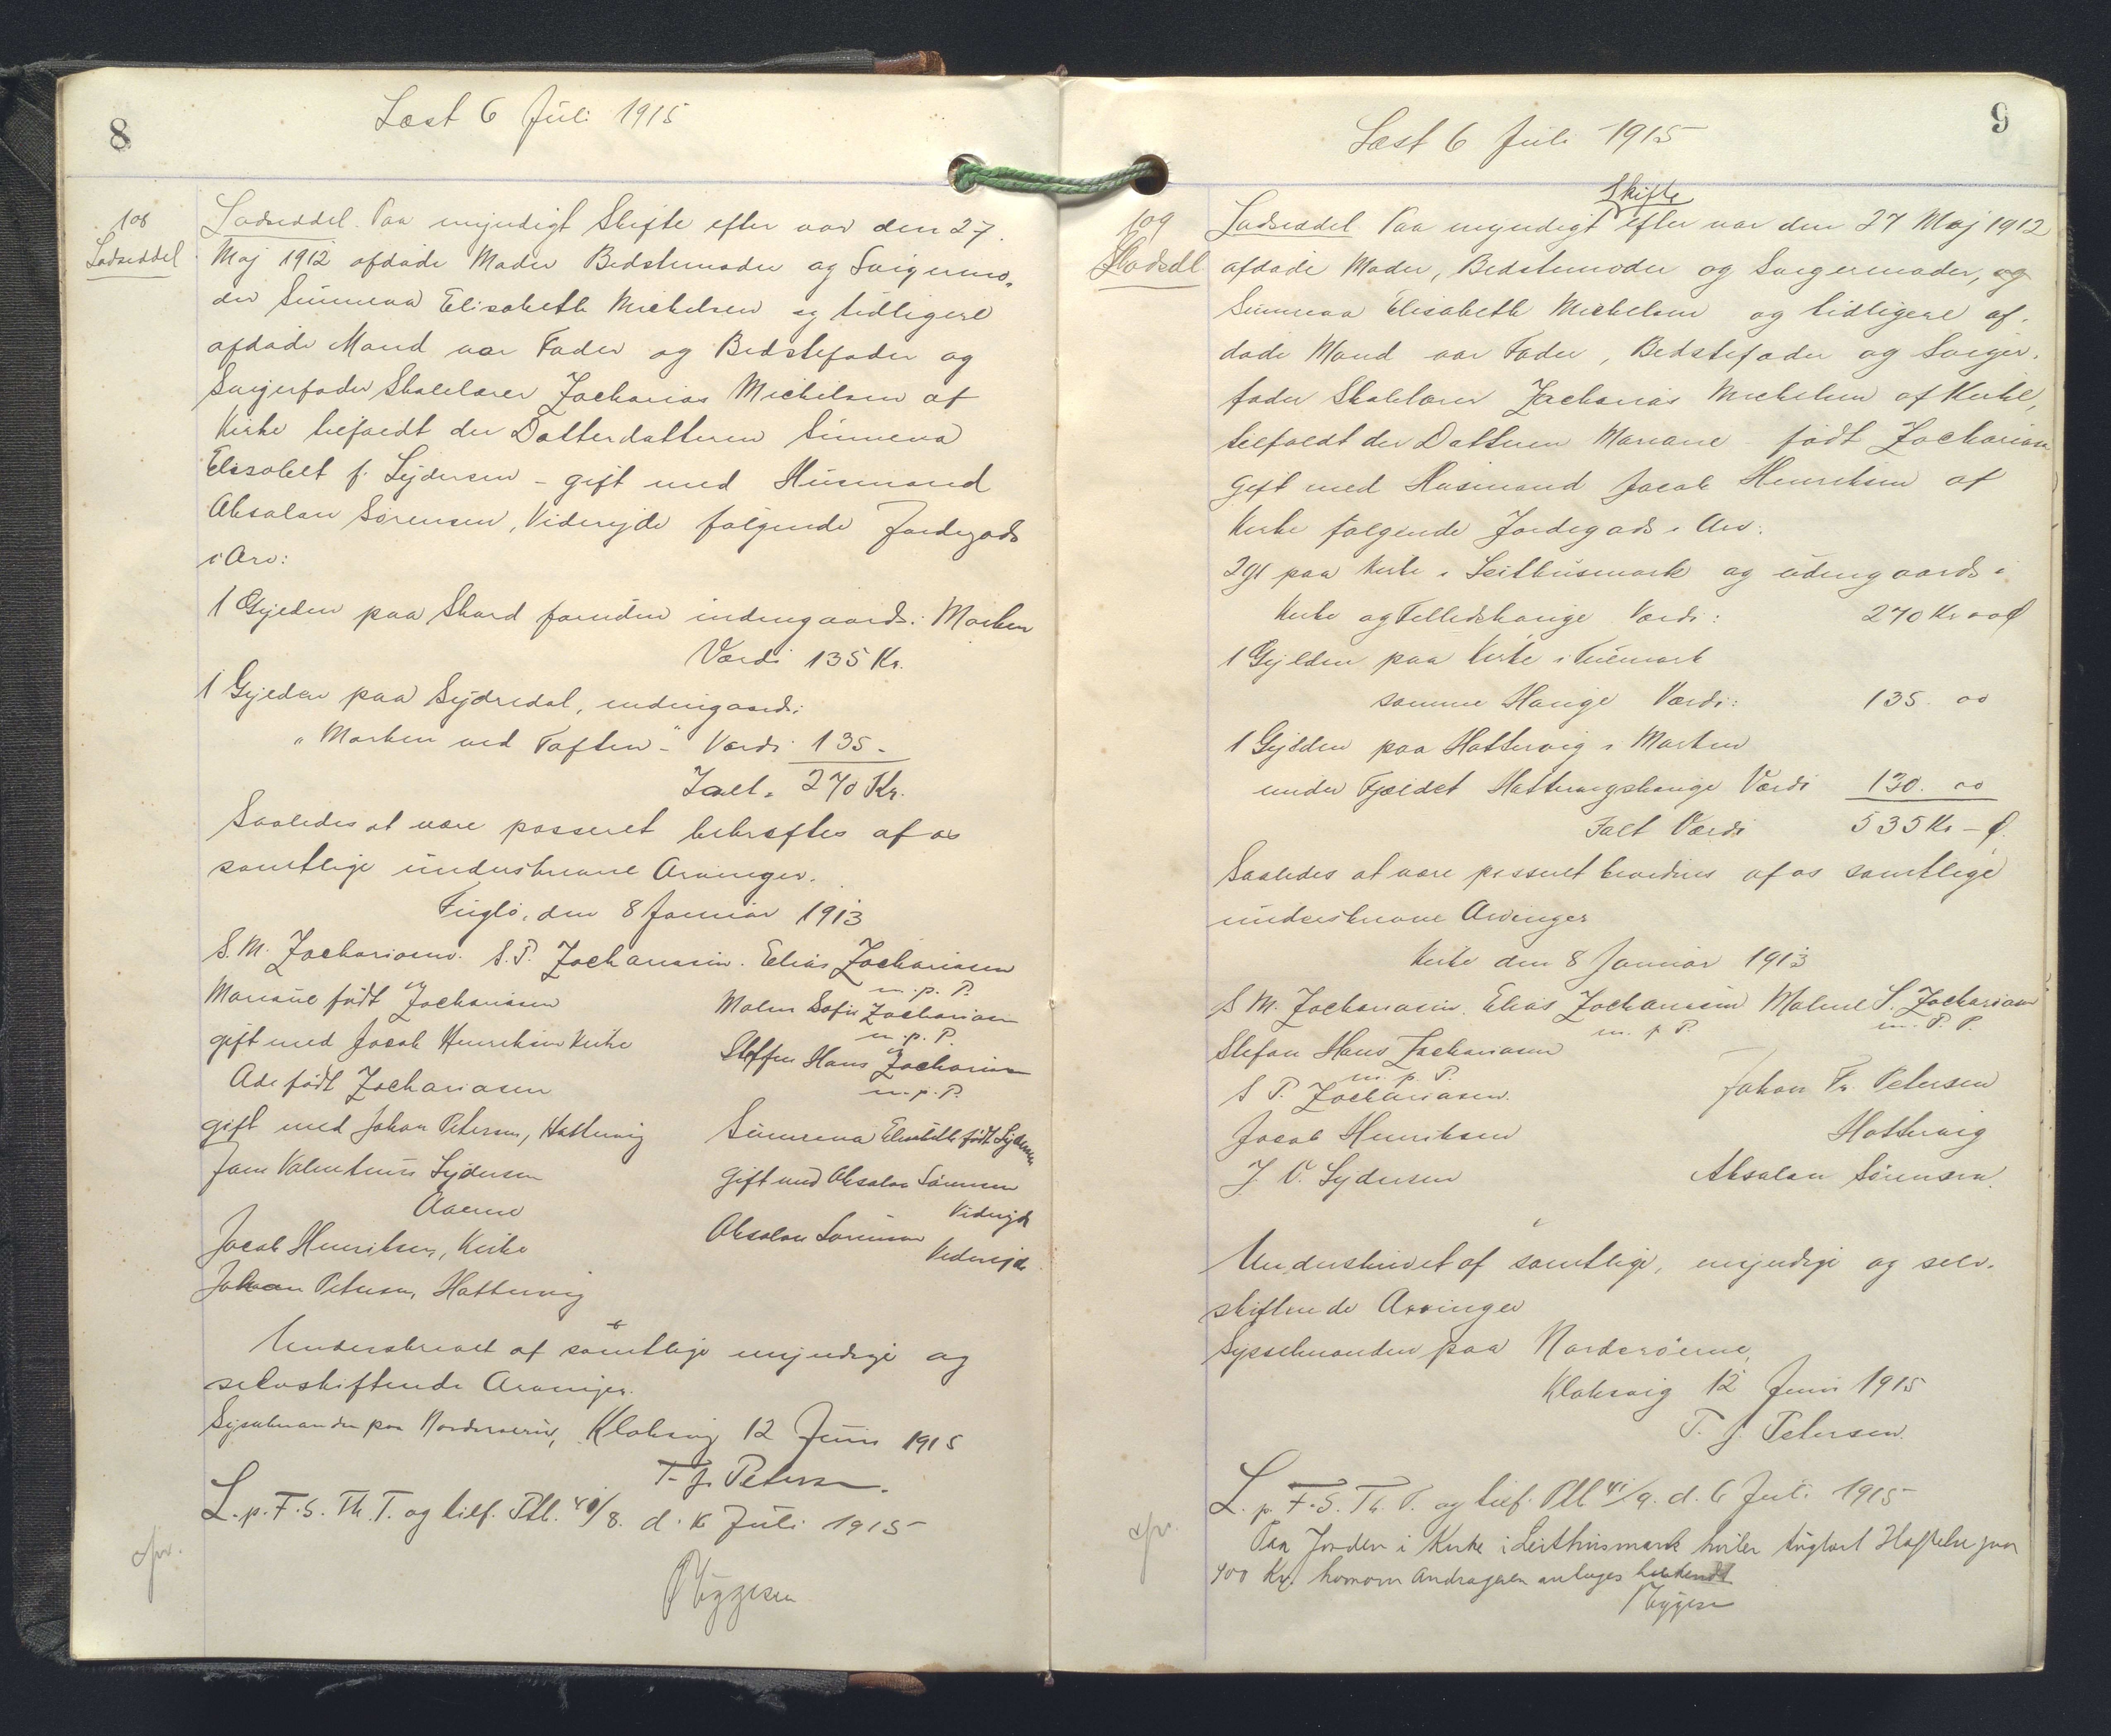 8
Læst 6 Juli 1915
108
Lodseddel
Lodseddel. Paa myndigt Skifte efter vor den 27.
Maj 1912 afdøde Moder Bedstemoder og Svigermo-
der Sunneva Elisabeth Michelsen og tidligere
afdøde Mand vor Fader og Bedstefader og
Svigerfader Skolelærer Zacharias Michelsen af
Kirke tilfaldt der Datterdatteren Sunneva
Elisabet f. Lydersen - gift med Husmand
Absalon Sørensen, Viderejde følgende Jordegods
i Arv:
1 Gylden paa Skard foruden indengaards: Marken
Værdi 135 Kr.
1 Gylden paa Sydredal, indengaards:
"Marken ved Toften" - Værdi 135 -
Ialt. 270 Kr.
Saaledes at være passeret bekræftes af os
samtlige underskrevne Arvinger.
Fuglø, den 8 Januar 1913
S. M. Zachariasen. S. P. Zachariasen. Elias Zachariasen
m. p. P.
Mariane født Zachariasen
Malene Sofie Zachariasen
m. p. P.
gift med Jacob Henriksen Kirke
Steffen Hans Zachariasen
m. p. P.
Ade født Zachariasen
gift med Johan Petersen, Hattervig
Sunneva Elisabeth født Lydersen
Jens Valentinus Lydersen
gift med Absalon Sørensen
Viderejde
Jacob Henriksen, Kirke
Absalon Sørensen
Viderejde
Johan Petersen, Hattervig
Underskrevet af samtlige myndige og
selvskiftende Arvinger.
Sysselmanden paa Norderøerne, Klaksvig 12 Juni 1915
T. J. Petersen.
L. p. F. S. Th. T. og tilf. Ptl. 40/8. d. 6 Juli 1915
9
Læst 6 Juli 1915
109
Lodsedl
Skifte
Lodseddel. Paa myndigt efter vor den 27 Maj 1912
afdøde Moder, Bedstemoder og Svigermoder, og
Sunneva Elisabeth Michelsen og tidligere af-
døde Mand vor Fader, Bedstefader og Sviger-
fader Skolelærer Zacharias Michelsen af Kirke,
tilfaldt der Datteren Mariane født Zachariasen
gift med Husmand Jacob Henriksen af
Kirke følgende Jordegods i Arv:
2 gl paa Kirke i Leithusmark og udengaards i
Kirke og Felledshauge Værdi: 270 Kr 00 Ø
1 Gylden paa Kirke i Tuemark
samme Hauge Værdi: 135. 00
1 Gylden paa Hattervig i Marken
under Fjældet Hattervigshauge Værdi 130. 00
Ialt Værdi 535 Kr - Ø.
Saaledes at være passeret bevidnes af os samtlige
underskrevne Arvinger
Kirke den 8 Januar 1913
S. M. Zachariasen. Elias Zachariasen Malene S. Zachariasen
m. p. P. m. P. P.
Stefan Hans Zachariasen
m. p. P.
S P. Zachariasen.
Johan Fr. Petersen
Jacob Henriksen
Hattervig
J. V. Lydersen
Absalon Sørensen.
Underskrevet af samtlige, myndige og selv-
skiftende Arvinger
Sysselmanden paa Norderøerne,
Klaksvig 12 Juni 1915
T. J. Petersen.
L. p. F. S. Th. T. og tilf. Ptl 41/9. d. 6 Juli 1915
Paa Jorden i Kirke i Leithusmark hviler tinglæst Hæftelse paa
400 Kr. hvorom Andrageren antages bekendt